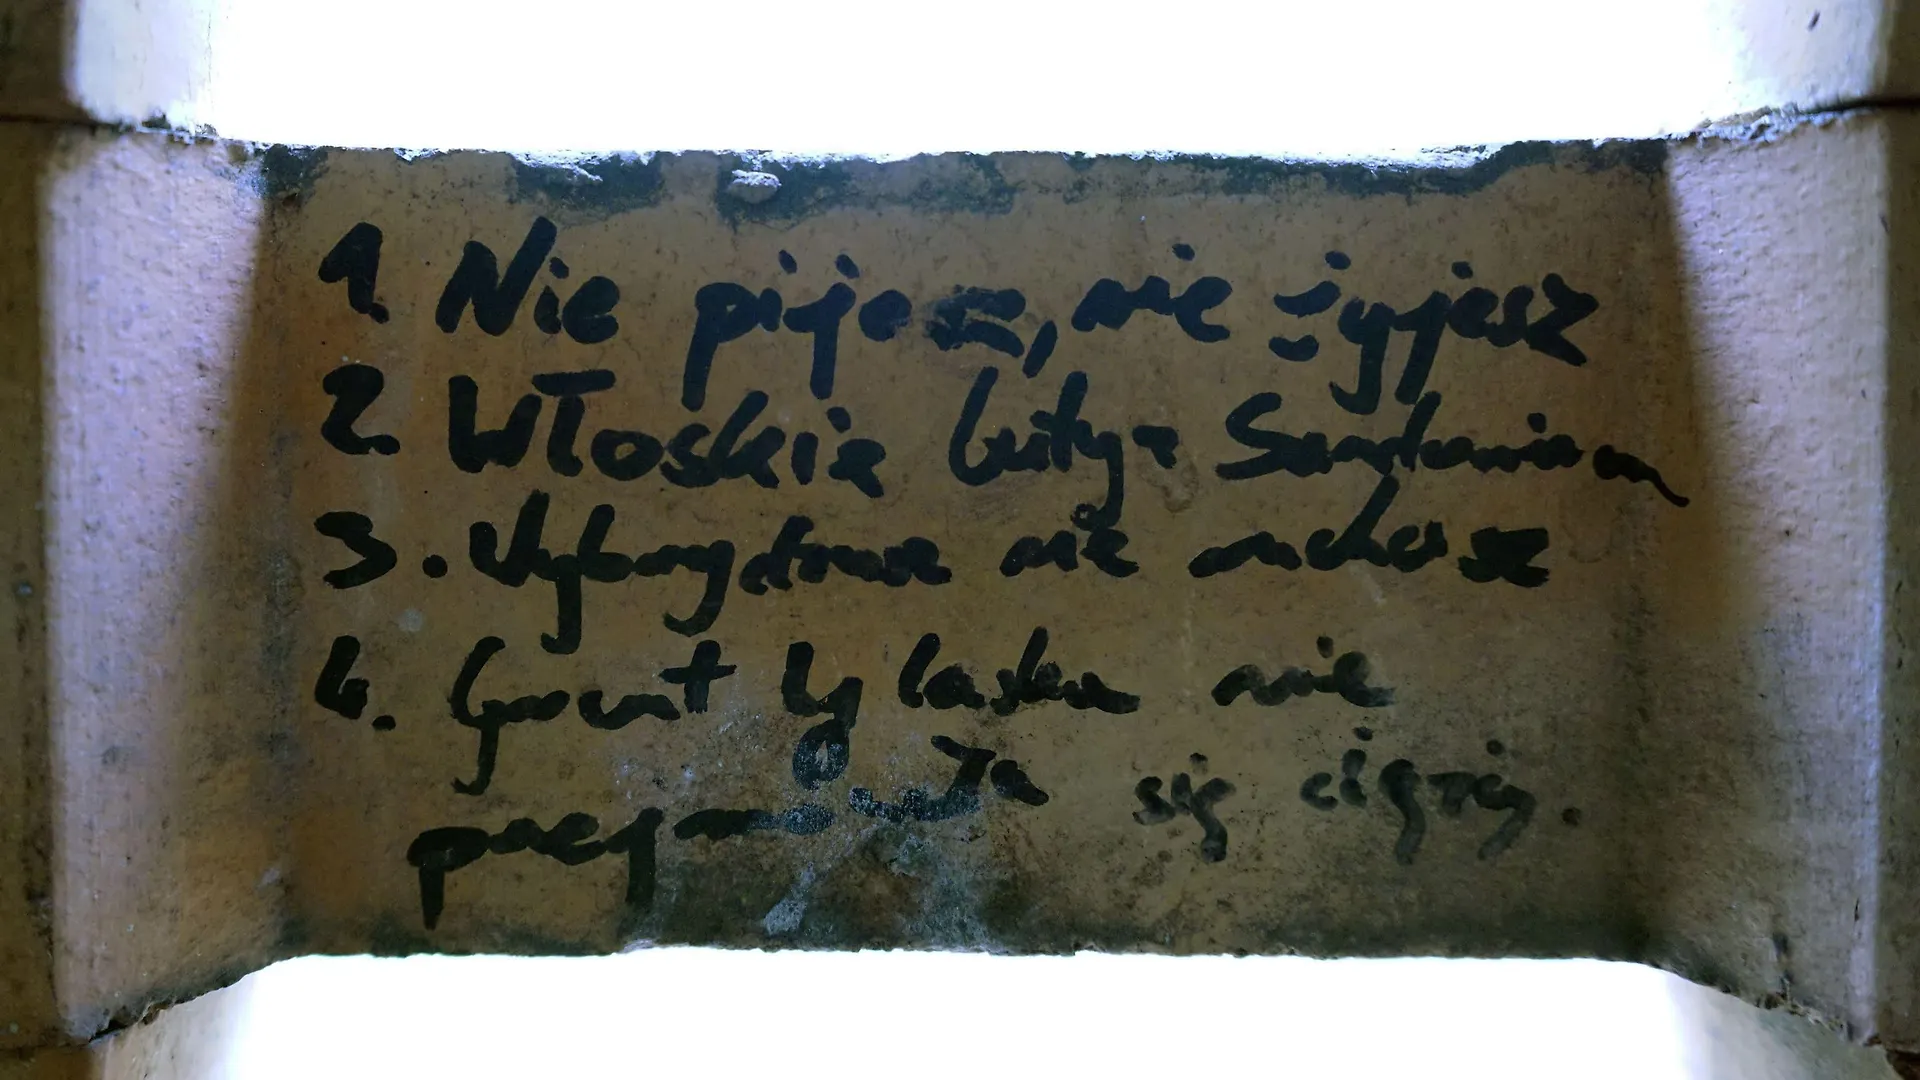 1. Nie pijesz, nie żyjesz
2. Włoskie buty z
3. Wybrydzasz nie ruchasz
4. Grunt by laska nie
się ciąży.